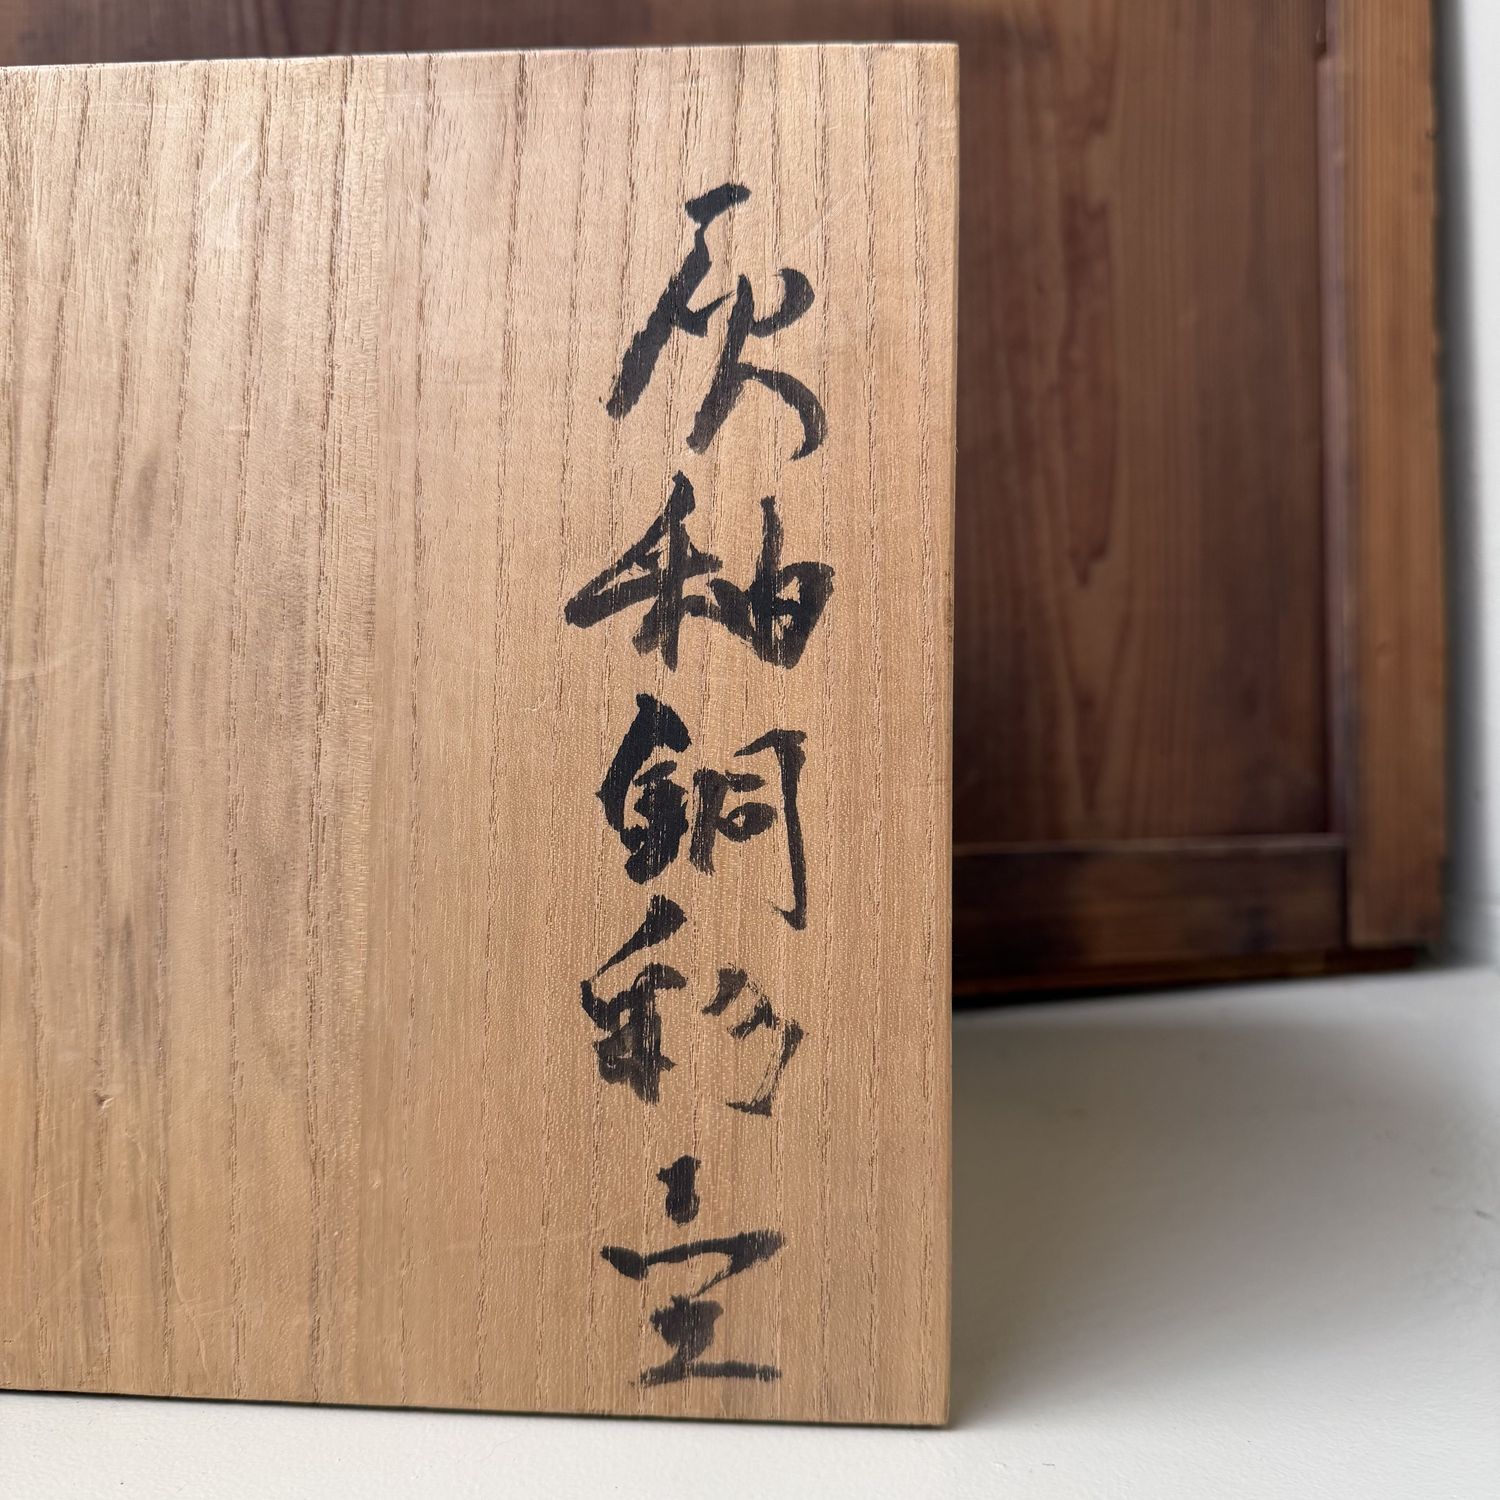 灰釉銅彩壷